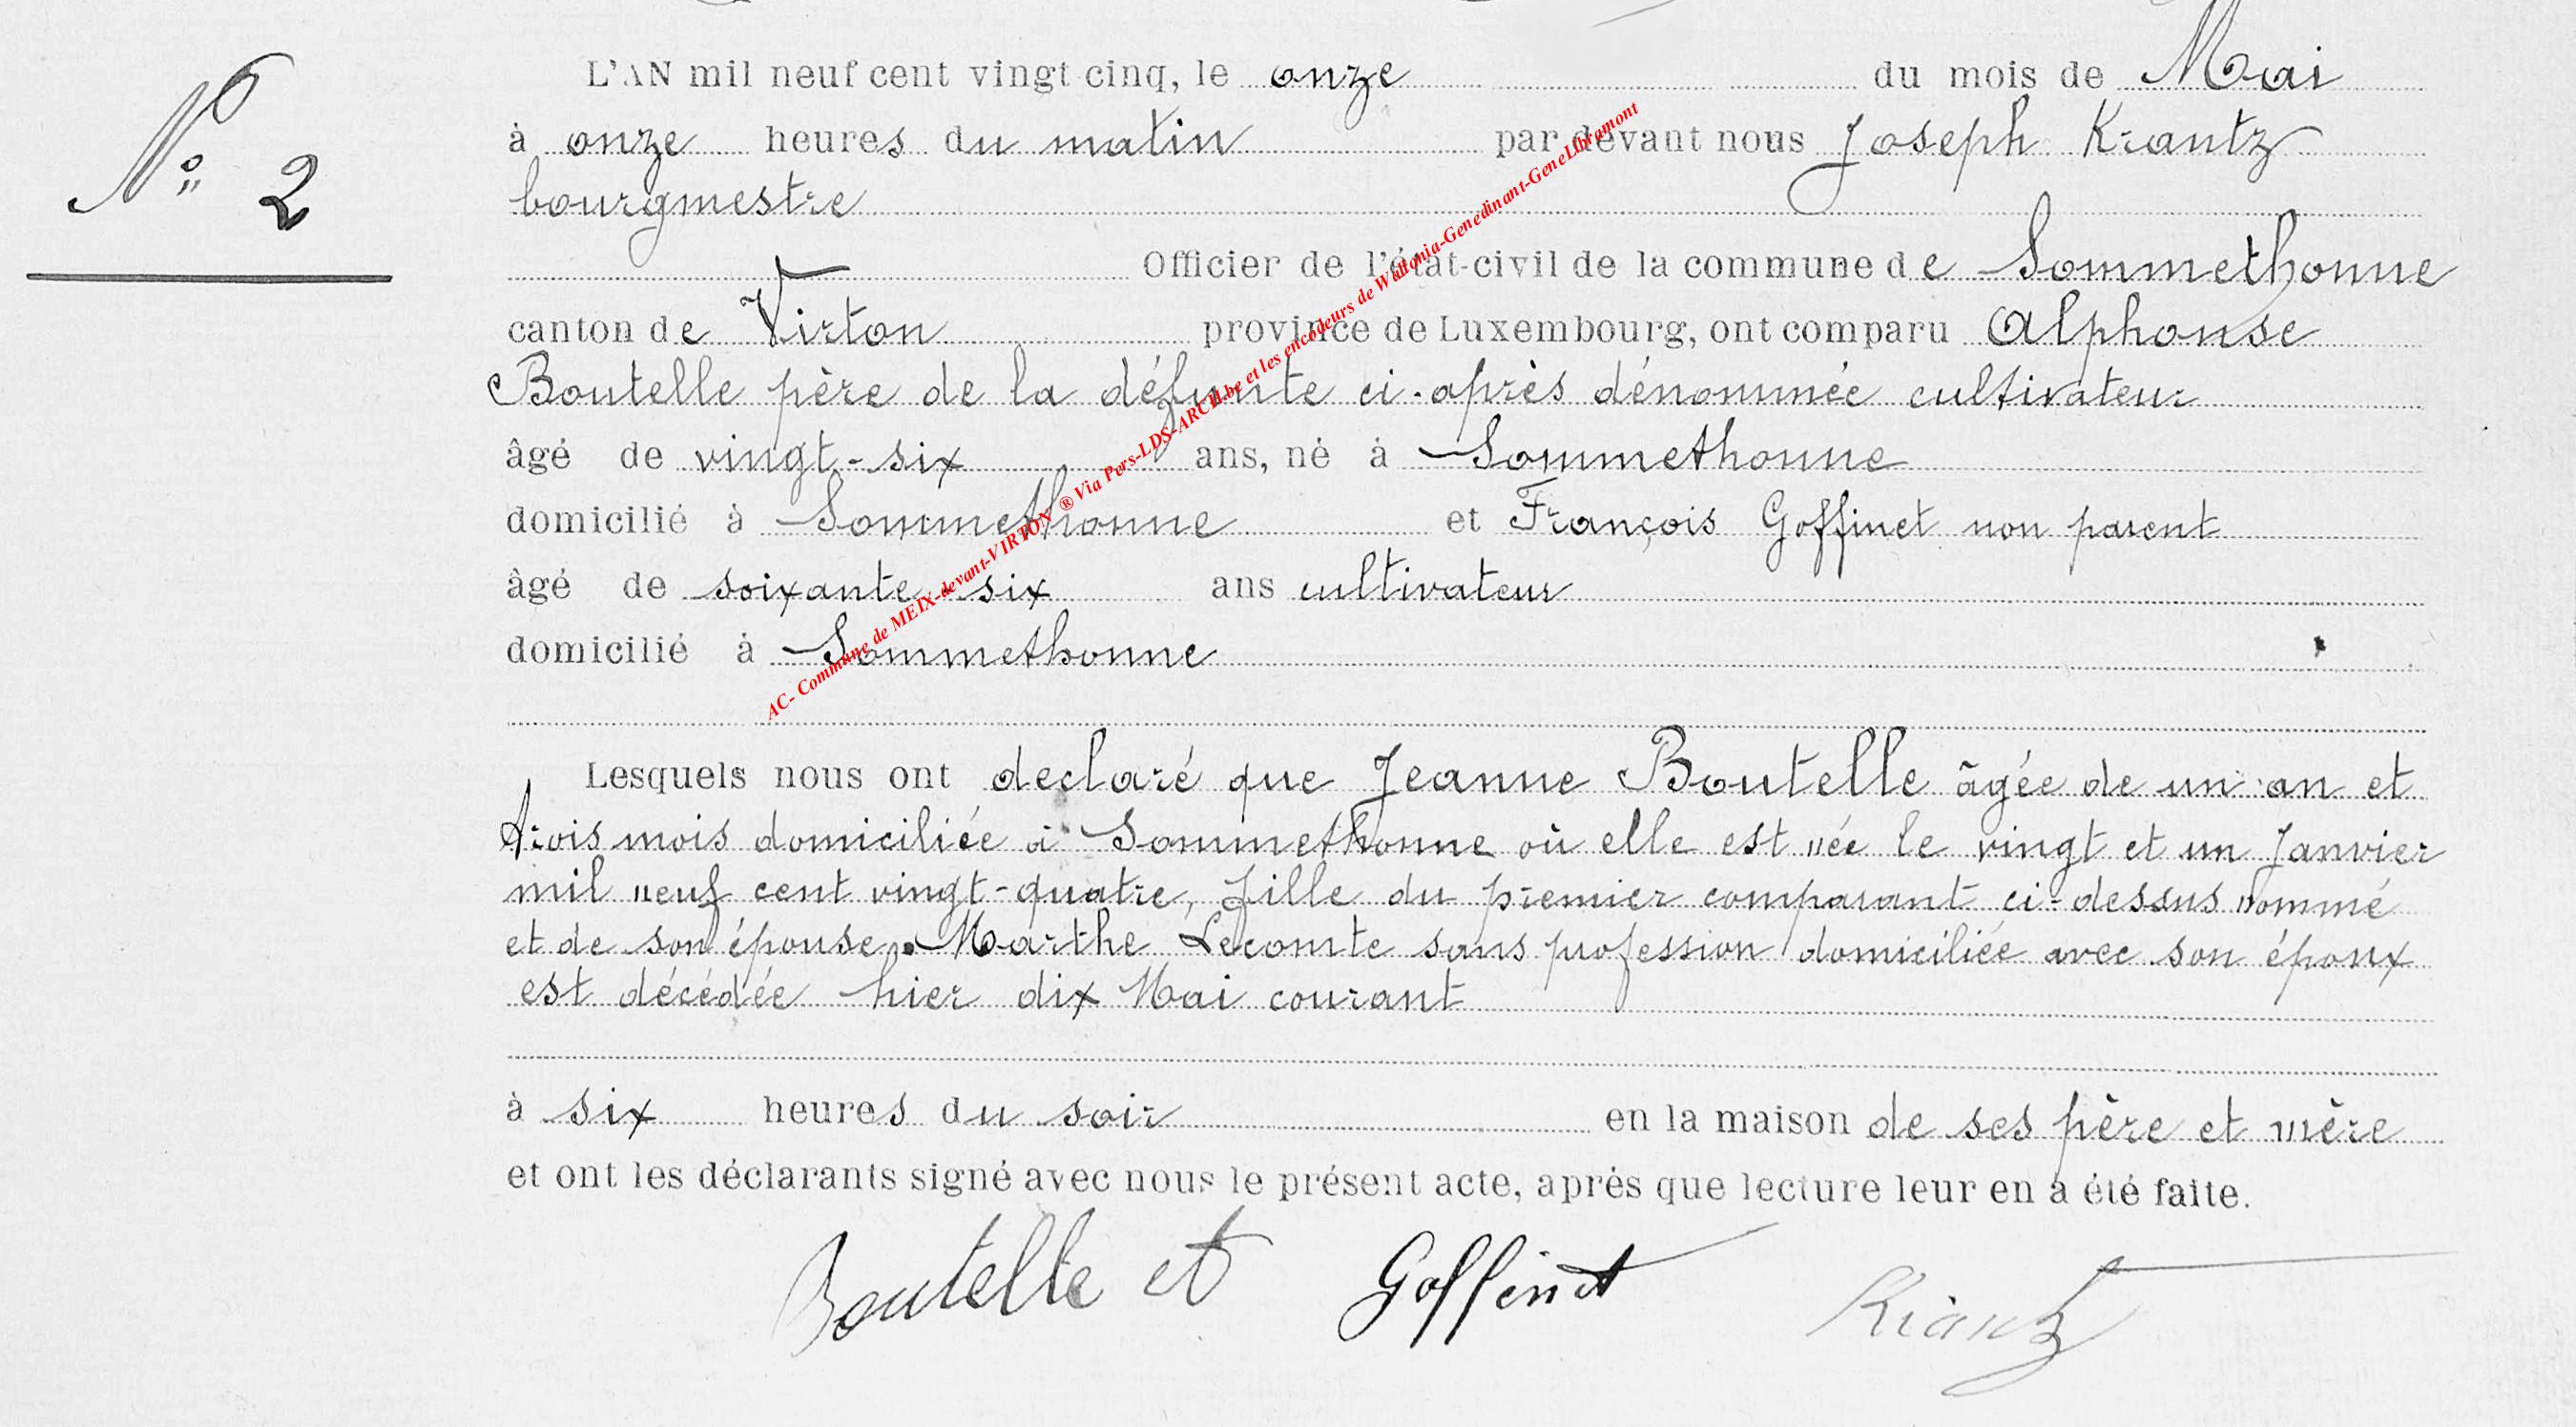 N° 2
L'AN mil neuf cent vingt cinq, le onze du mois de Mai
à onze heures du matin par devant nous Joseph Krantz
bourgmestre
Officier de l'état-civil de la commune de Sommethonne
canton de Virton province de Luxembourg, ont comparu Alphonse
Boutelle père de la défunte ci-après dénommée cultivateur
âgé de vingt-six ans, né à Sommethonne
domicilié à Sommethonne et François Goffinet non parent
âgé de soixante-six ans cultivateur
domicilié à Sommethonne
Lesquels nous ont declaré que Jeanne Boutelle âgée de un an et
trois mois domiciliée à Sommethonne où elle est née le vingt et un Janvier
mil neuf cent vingt-quatre, fille du premier comparant ci-dessus nommé
et de son épouse Marthe Lecomte sans profession domiciliée avec son époux
est décédée hier dix Mai courant
à six heures du soir en la maison de ses père et mère
et ont les déclarants signé avec nous le présent acte, après que lecture leur en a été faite.
Boutelle et Goffinet Krantz
AC- Commune de MEIX-devant-VIRTON ® Via Pers-LDS-ARCH.be et les encodeurs de Wallonia-Genedinant-GeneLibramont